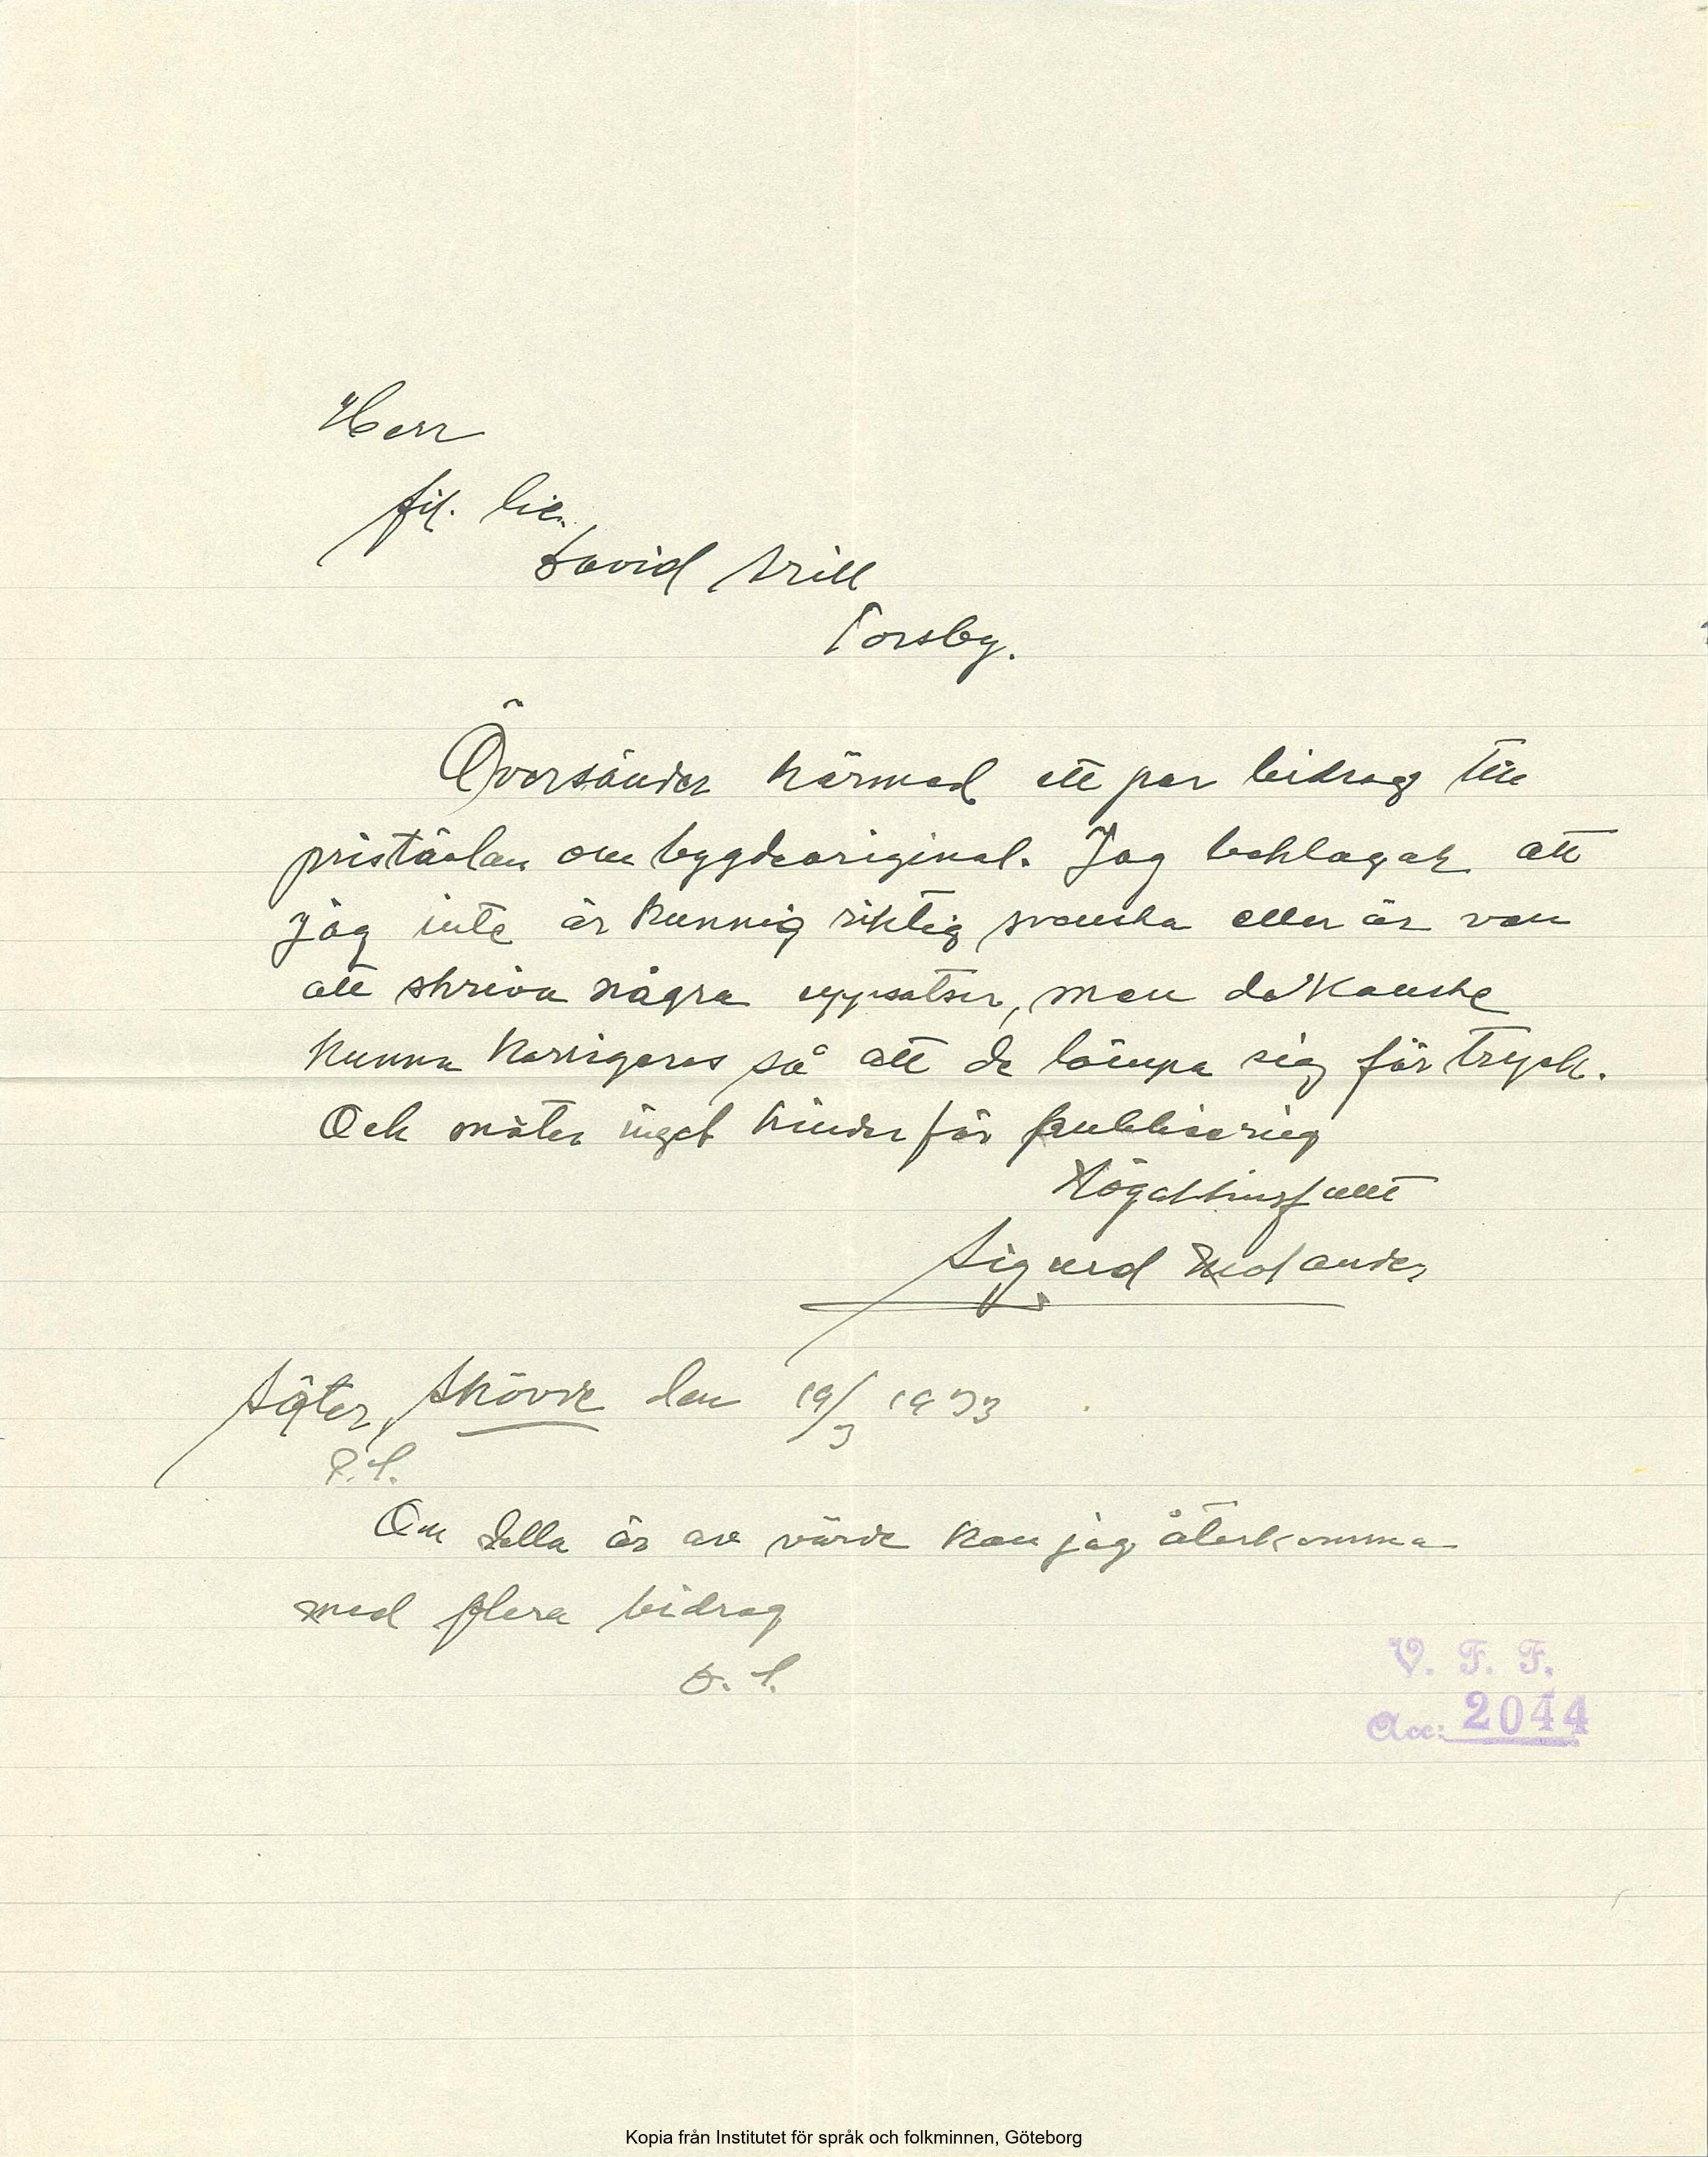 Herr
fil. lic.
David Arill
Torsby.
Översänder härmed ett par bidrag till
pristävlan om bygdeoriginal. Jag beklagar att
jag inte är kunnig riktig svenska eller är van
att skriva några uppsatser, men de kanske
kunna korrigeras så att de lämpa sig för tryck.
Och möter inget hinder för publisering
Högaktningsfullt
Sigurd Melander
Säter, Skövde den 19/3 1933
P.S.
Om dessa är av värde kan jag återkomma
med flera bidrag
D.S.
V. F. F.
Acc: 2044
Kopia från Institutet för språk och folkminnen, Göteborg